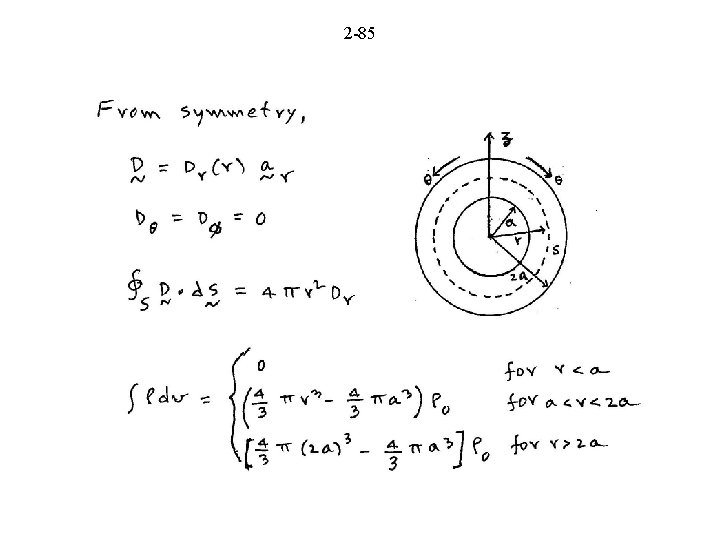 2-85
From symmetry,
D = Dr(r) ar
Dθ = Dϕ = 0
∮S D · dS = 4πr² Dr
∫ρdv = { 0 for r < a
(4/3 πr³ - 4/3 πa³) ρ0 for a < r < 2a
[4/3 π(2a)³ - 4/3 πa³] ρ0 for r > 2a
z
θ θ
a
r
S
2a